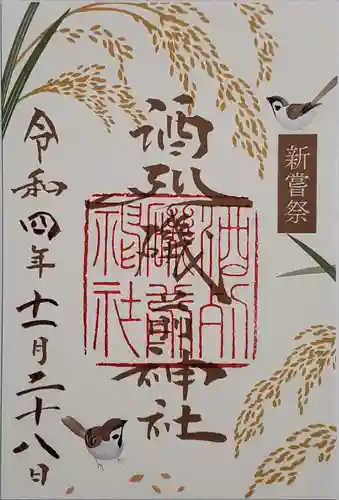 新嘗祭
酒列磯前神社
酒列磯前神社
令和四年十一月二十八日